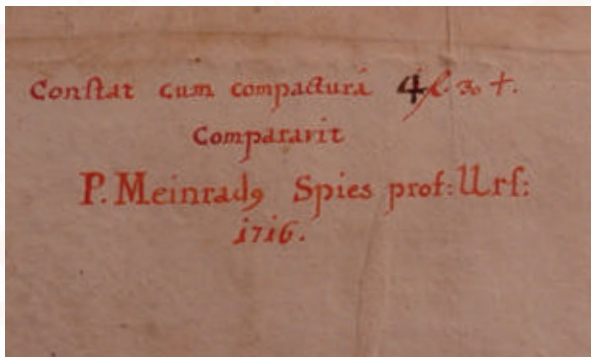 Constat cum compacturâ 4 fl. 30 +.
Comparavit
P. Meinradꝰ Spies prof: Urs:
1716.